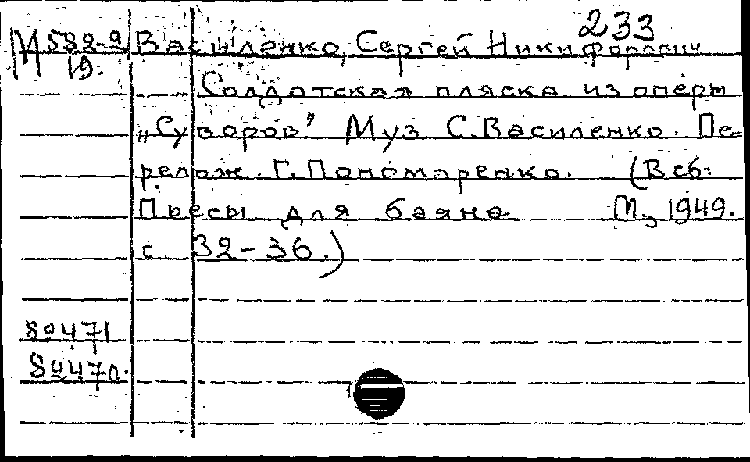 233
М 582-9 Василенко, Сергей Никифорович
19.
Солдатская пляска из оперы
„Суворов" Муз С. Василенко. Пе-
релож. Г. Пономаренко. (В сб:
Пьесы для баяна М, 1949.
с. 32-36.)
80471
80470.